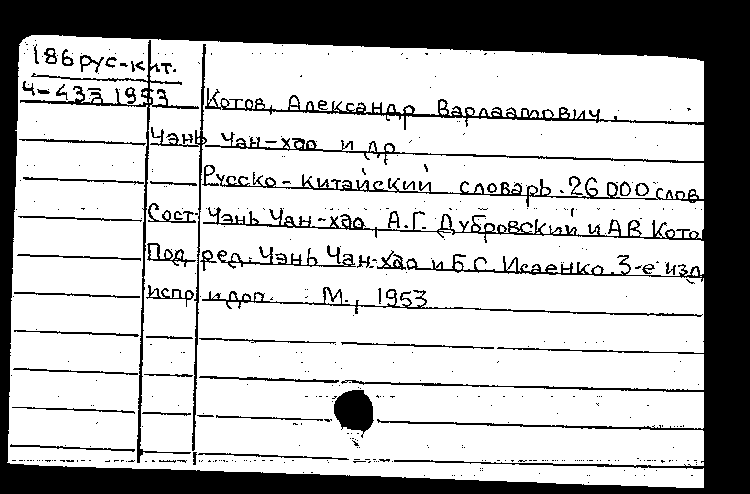 186 рус-кит.
Ч-433 1953
Котов, Александр Варлаамович.
Чэнь Чан-хао и др.
Русско-китайский словарь. 26 000 слов
Сост. Чэнь Чан-хао, А.Г. Дубровский и А В Кото
Под ред. Чэнь Чан-хао и Б.С. Исаенко. 3-е изд,
испр. и доп. М., 1953